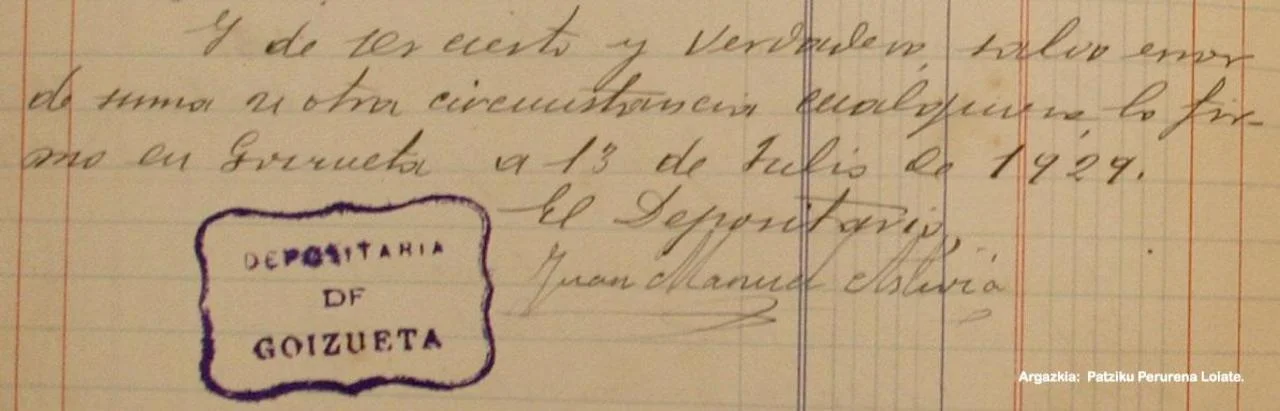 Y de ser cierto y verdadero, salvo error
de suma u otra circunstancia cualquiera, lo fir-
mo en Goizueta a 13 de Julio de 1929.
El Depositario,
Juan Manuel
DEPOSITARIA
DE
GOIZUETA
Argazkia: Patziku Perurena Loiate.